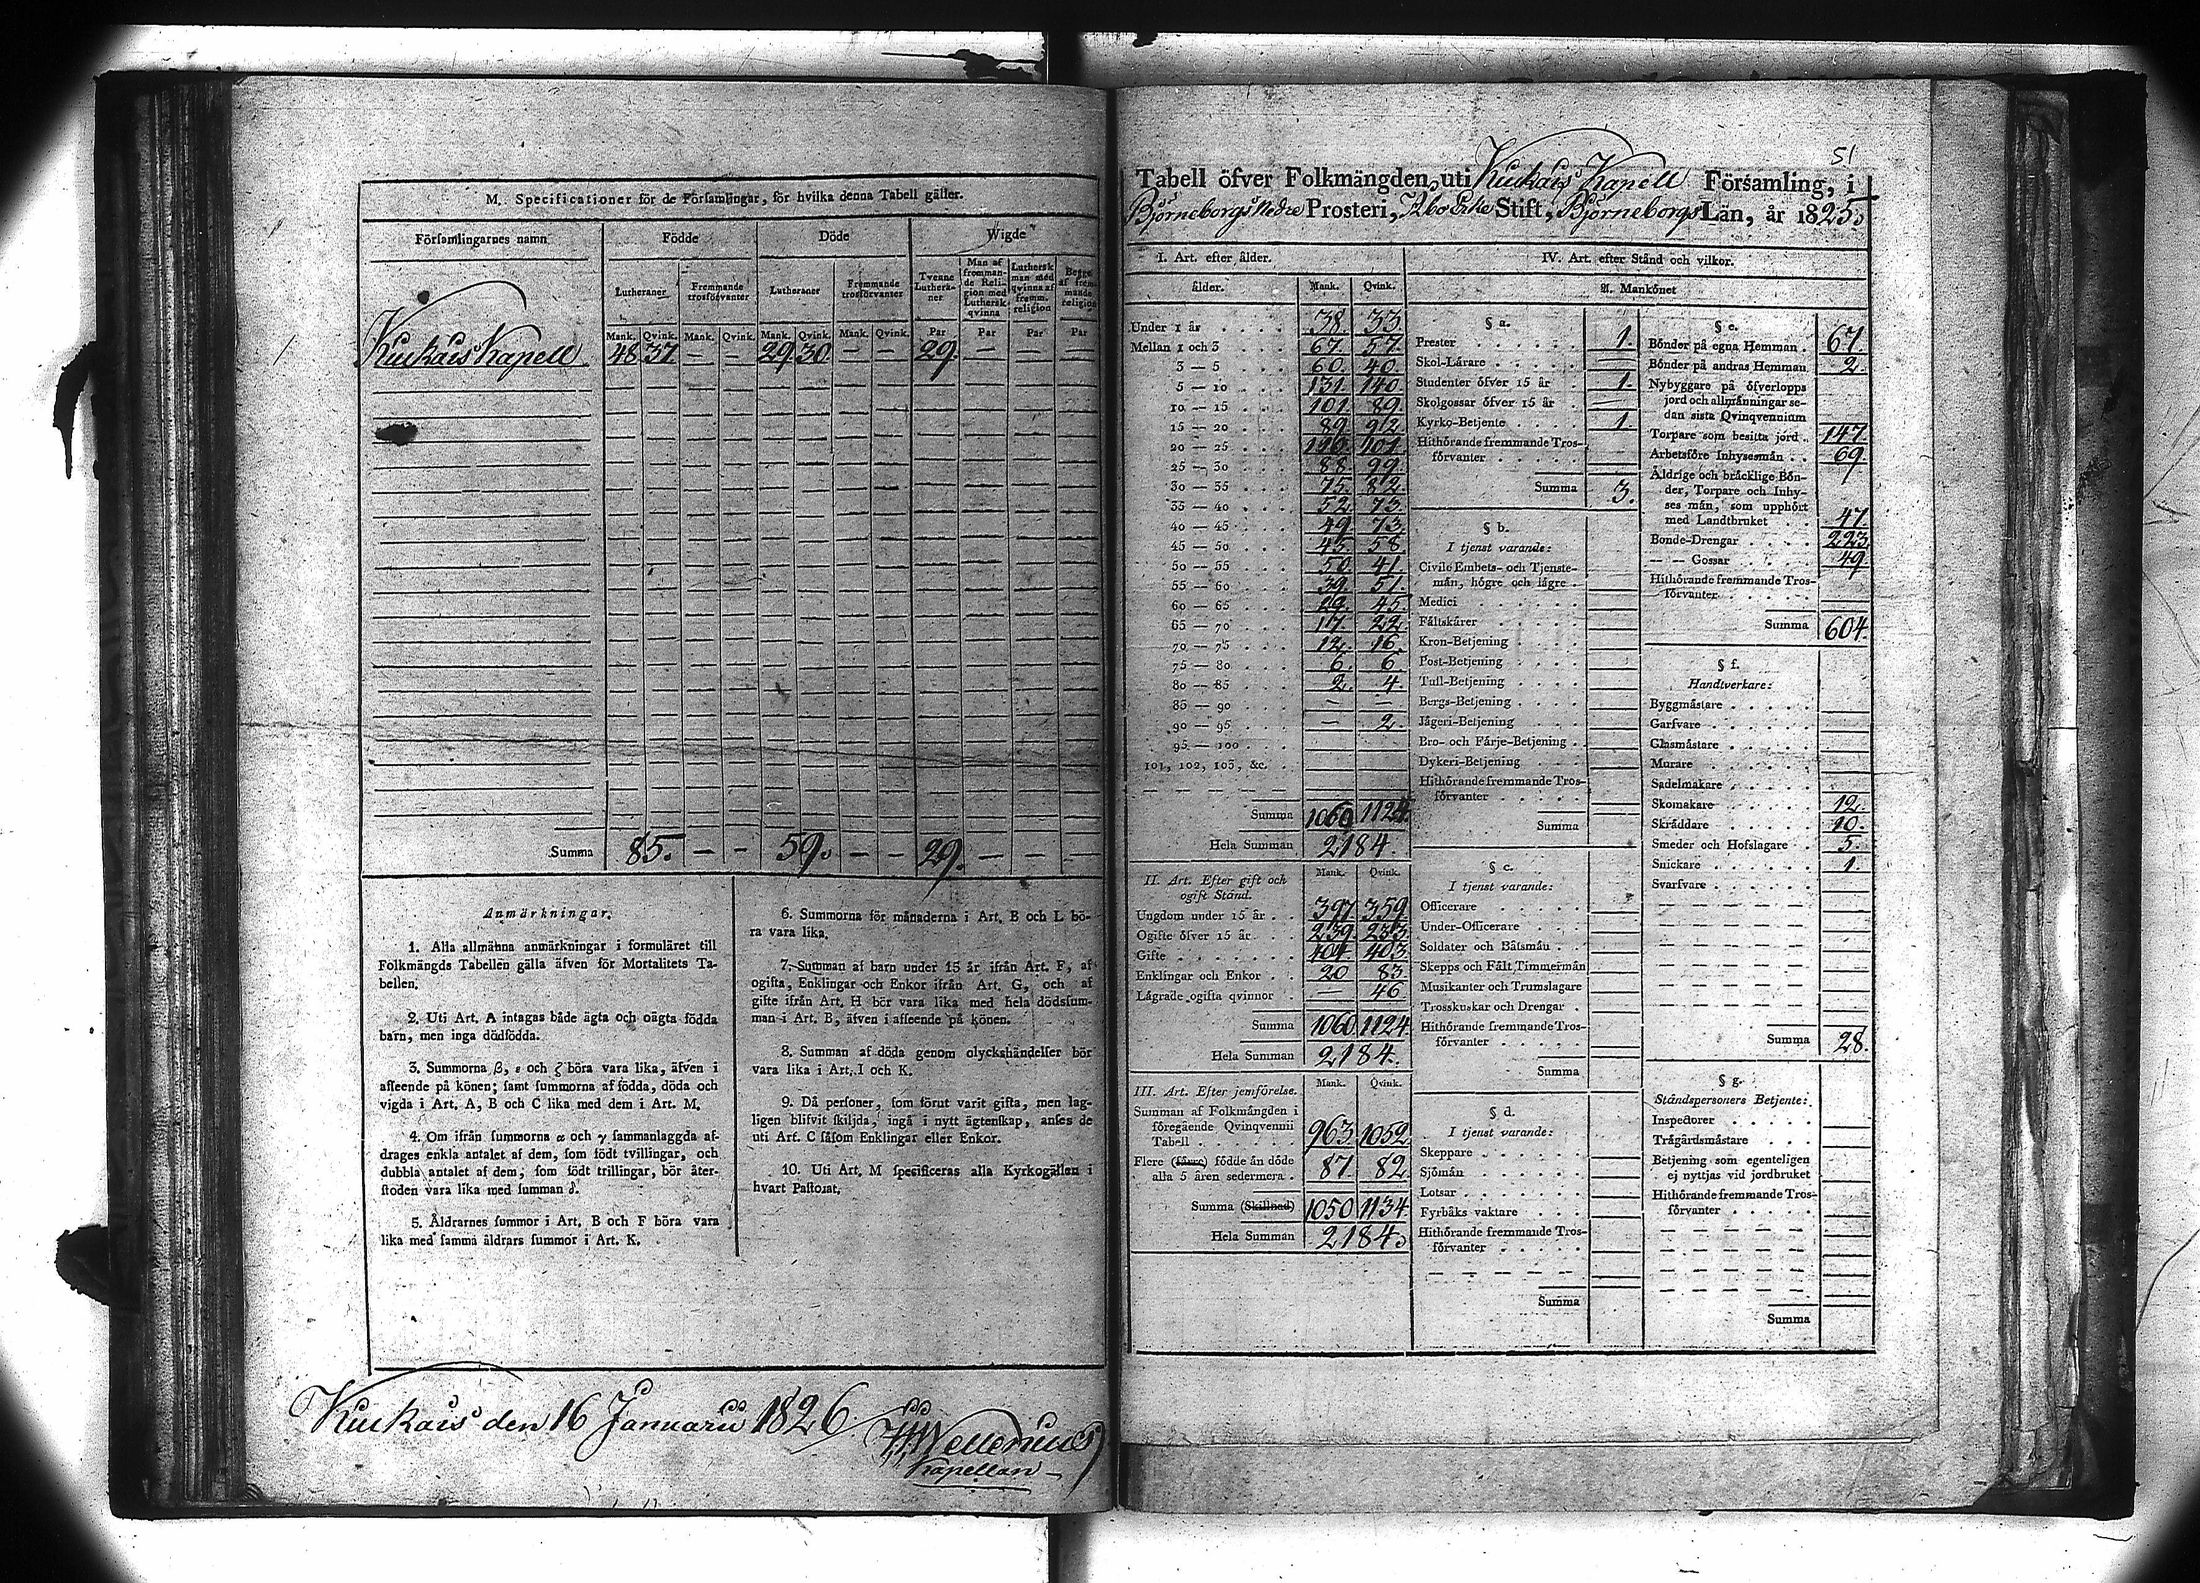 M. Specificationer för de Församlingar, för hvilka denna Tabell gäller.
Församlingarnes namn Födde Döde Wigde
Lutheraner Fremmande trosförvanter Lutheraner Fremmande trosförvanter Tvenne Lutheraner Man af fremmande Religion med Luthersk qvinna Luthersk man med qvinna af fremm. religion Begge af fremmande religion
Mank. Qvink. Mank. Qvink. Mank. Qvink. Mank. Qvink. Par Par Par Par
Kiukais Kapell 48 37 — — 29 30 — — 29. — — —
Summa 85. — — 59. — — 29. — — —
Anmärkningar.
1. Alla allmänna anmärkningar i formuläret till
Folkmängds Tabellen gälla äfven för Mortalitets Ta-
bellen.
2. Uti Art. A intagas både ägta och oägta födda
barn, men inga dödfödda.
3. Summorna β, ε och ζ böra vara lika, äfven i
afseende på könen; samt summorna af födda, döda och
vigda i Art. A, B och C lika med dem i Art. M.
4. Om ifrån summorna α och γ sammanlaggda af-
drages enkla antalet af dem, som födt tvillingar, och
dubbla antalet af dem, som födt trillingar, bör åter-
stoden vara lika med summan δ.
5. Åldrarnes summor i Art. B och F böra vara
lika med samma åldrars summor i Art. K.
6. Summorna för månaderna i Art. B och L bö-
ra vara lika.
7. Summan af barn under 15 år ifrån Art. F, af
ogifta, Enklingar och Enkor ifrån Art. G, och af
gifte ifrån Art. H bör vara lika med hela dödssum-
man i Art. B, äfven i afseende på könen.
8. Summan af döda genom olyckshändelser bör
vara lika i Art. I och K.
9. Då personer, som förut varit gifta, men lag-
ligen blifvit skiljda, ingå i nytt ägtenskap, anses de
uti Art. C såsom Enklingar eller Enkor.
10. Uti Art. M specificeras alla Kyrkogällen i
hvart Pastorat.
Kiukais den 16 Januarii 1826
Kapellan
51
Tabell öfver Folkmängden uti Kiukais Kapell Församling, i
Björneborgs Nedre Prosteri, Åbo Erke Stift, Björneborgs Län, år 1825.
I. Art. efter ålder.
ålder. Mank. Qvink.
Under 1 år 38. 33.
Mellan 1 och 3 67. 57.
3 — 5 60. 40.
5 — 10 131. 140.
10 — 15 101. 89.
15 — 20 89. 92.
20 — 25 101.
25 — 30 88. 99.
30 — 35 75. 82.
35 — 40 52. 73.
40 — 45 49. 73.
45 — 50 45. 58.
50 — 55 50. 41.
55 — 60 39. 51.
60 — 65 29. 45.
65 — 70 17. 22.
70 — 75 12. 16.
75 — 80 6. 6
80 — 85 2. 4.
85 — 90 — —
90 — 95 — 2.
95 — 100
101, 102, 103, &c.
Summa 1060 1124.
Hela Summan 2184.
II. Art. Efter gift och
ogift Stånd. Mank. Qvink.
Ungdom under 15 år 397. 359.
Ogifte öfver 15 år 239. 233.
Gifte 404. 403.
Enklingar och Enkor 20 83.
Lägrade ogifta qvinnor — 46.
Summa 1060. 1124.
Hela Summan 2184.
III. Art. Efter jemförelse. Mank. Qvink.
Summan af Folkmängden i
föregående Qvinqvennii
Tabell 963. 1052.
Flere (färre) födde än döde
alla 5 åren sedermera 87. 82
Summa (Skillnad) 1050 1134.
Hela Summan 2184.
IV. Art. efter Stånd och vilkor.
A. Mankönet
§ a.
Prester 1.
Skol-Lärare
Studenter öfver 15 år 1.
Skolgossar öfver 15 år
Kyrko-Betjente 1.
Hithörande fremmande Tros-
förvanter
Summa 3.
§ b.
I tjenst varande:
Civile Embets- och Tjenste-
män, högre och lägre
Medici
Fältskärer
Kron-Betjening
Post-Betjening
Tull-Betjening
Bergs-Betjening
Jägeri-Betjening
Bro- och Färje-Betjening
Dykeri-Betjening
Hithörande fremmande Tros-
förvanter
Summa
§ c.
I tjenst varande:
Officerare
Under-Officerare
Soldater och Båtsmän
Skepps och Fält Timmermän
Musikanter och Trumslagare
Trosskuskar och Drengar
Hithörande fremmande Tros-
förvanter
Summa
§ d.
I tjenst varande:
Skeppare
Sjömän
Lotsar
Fyrbåks vaktare
Hithörande fremmande Tros-
förvanter
Summa
§ e.
Bönder på egna Hemman 67.
Bönder på andras Hemman 2.
Nybyggare på öfverlopps
jord och allmänningar se-
dan sista Qvinqvennium
Torpare som besitta jord 147.
Arbetsföre Inhysesmän 69.
Åldrige och bräcklige Bön-
der, Torpare och Inhy-
ses män, som upphört
med Landtbruket 47.
Bonde-Drengar 223.
— — Gossar 49.
Hithörande fremmande Tros-
förvanter
Summa 604.
§ f.
Handtverkare:
Byggmästare
Garfvare
Glasmästare
Murare
Sadelmakare
Skomakare 12.
Skräddare 10.
Smeder och Hofslagare 5.
Snickare 1.
Svarfvare
Summa 28.
§ g.
Ståndspersoners Betjente:
Inspector
Trägårdsmästare
Betjening som egenteligen
ej nyttjas vid jordbruket
Hithörande fremmande Tros-
förvanter
Summa